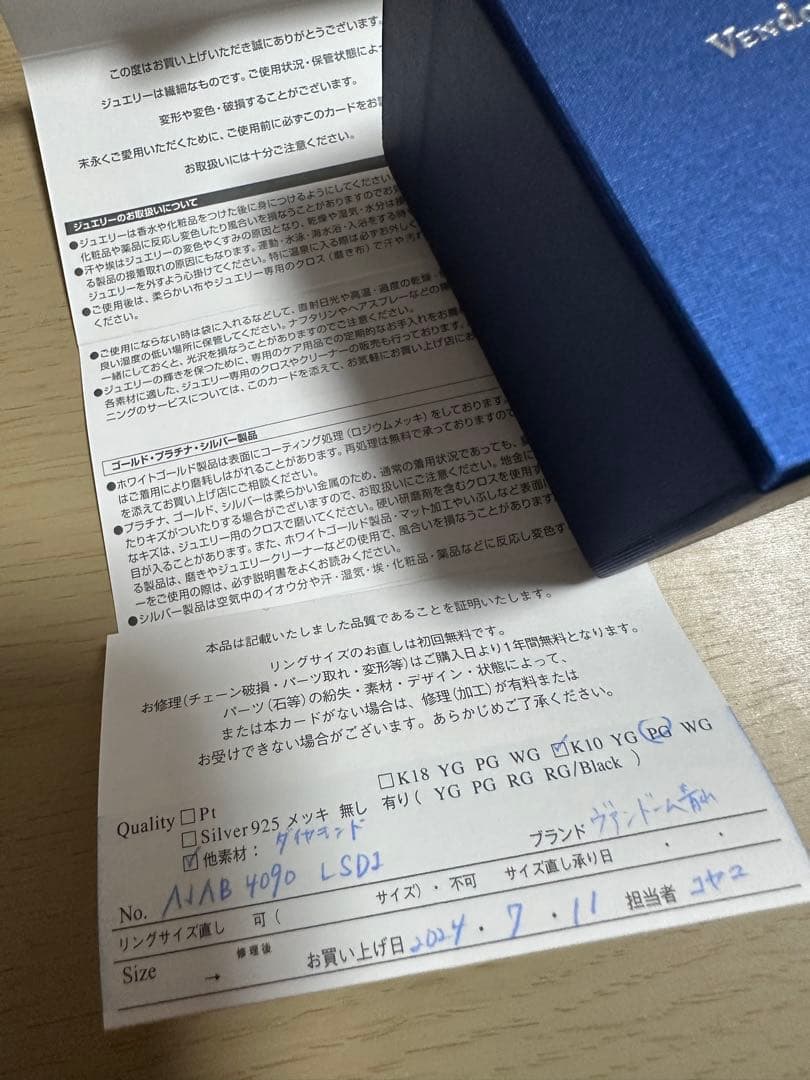 この度はお買い上げいただき誠にありがとうございます。
ジュエリーは繊細なものです。ご使用状況・保管状態によっ
変形や変色・破損することがございます。
末永くご愛用いただくために、ご使用前に必ずこのカードをお
お取扱いには十分ご注意ください。
ジュエリーのお取扱いについて
●ジュエリーは香水や化粧品をつけた後に身につけるようにしてください
化粧品や薬品に反応し変色したり風合いを損なうことがありますので
●汗や埃はジュエリーの変色やくすみの原因となり、乾燥や湿気・水分は接
る製品の接着取れの原因にもなります。運動・水泳・海水浴・入浴をする時
ジュエリーを外すよう心掛けてください。特に温泉に入る際は必ずお外しく
●ご使用後は、柔らかい布やジュエリー専用のクロス(磨き布)で汗や汚れ
ください。
●ご使用にならない時は袋に入れるなどして、直射日光や高温・過度の乾燥・
良い湿度の低い場所に保管してください。ナフタリンやヘアスプレーなどの
一緒にしておくと、光沢を損なうことがありますのでご注意ください。
●ジュエリーの輝きを保つために、専用のケア用品での定期的なお手入れをお
各素材に適した、ジュエリー専用のクロスやクリーナーの販売も行っております。
ニングのサービスについては、このカードを添えて、お気軽にお買い上げ店にお
ゴールド・プラチナ・シルバー製品
●ホワイトゴールド製品は表面にコーティング処理(ロジウムメッキ)をしております。
はご着用により磨耗しはがれることがあります。再処理は無料で承っておりますので
を添えてお買い上げ店にご相談ください。
●プラチナ、ゴールド、シルバーは柔らかい金属のため、通常の着用状況であっても、
たりキズがついたりする場合がございますので、お取扱いにご注意ください。地金に
なキズは、ジュエリー用のクロスで磨いてください。硬い研磨剤を含むクロスを使用す
目が入ることがあります。また、ホワイトゴールド製品・マット加工やいぶしなど表面に
る製品は、磨きやジュエリークリーナーなどの使用で、風合いを損なうことがあります
ーをご使用の際は、必ず説明書をよくお読みください。
●シルバー製品は空気中のイオウ分や汗・湿気・埃・化粧品・薬品などに反応し変色す
本品は記載いたしました品質であることを証明いたします。
リングサイズのお直しは初回無料です。
お修理(チェーン破損・パーツ取れ・変形等)はご購入日より1年間無料となります。
パーツ(石等)の紛失・素材・デザイン・状態によって、
または本カードがない場合は、修理(加工)が有料または
お受けできない場合がございます。あらかじめご了承ください。
Quality □Pt □K18 YG PG WG ☑K10 YG PG WG
□Silver925 メッキ 無し 有り( YG PG RG RG/Black )
☑他素材: ダイヤモンド ブランド ヴァンドーム青山
No. AJAB 4090 LSDI
リングサイズ直し 可( サイズ)・不可 サイズ直し承り日 ・ ・
Size → 修理後 お買い上げ日 2024・7・11 担当者 コヤマ